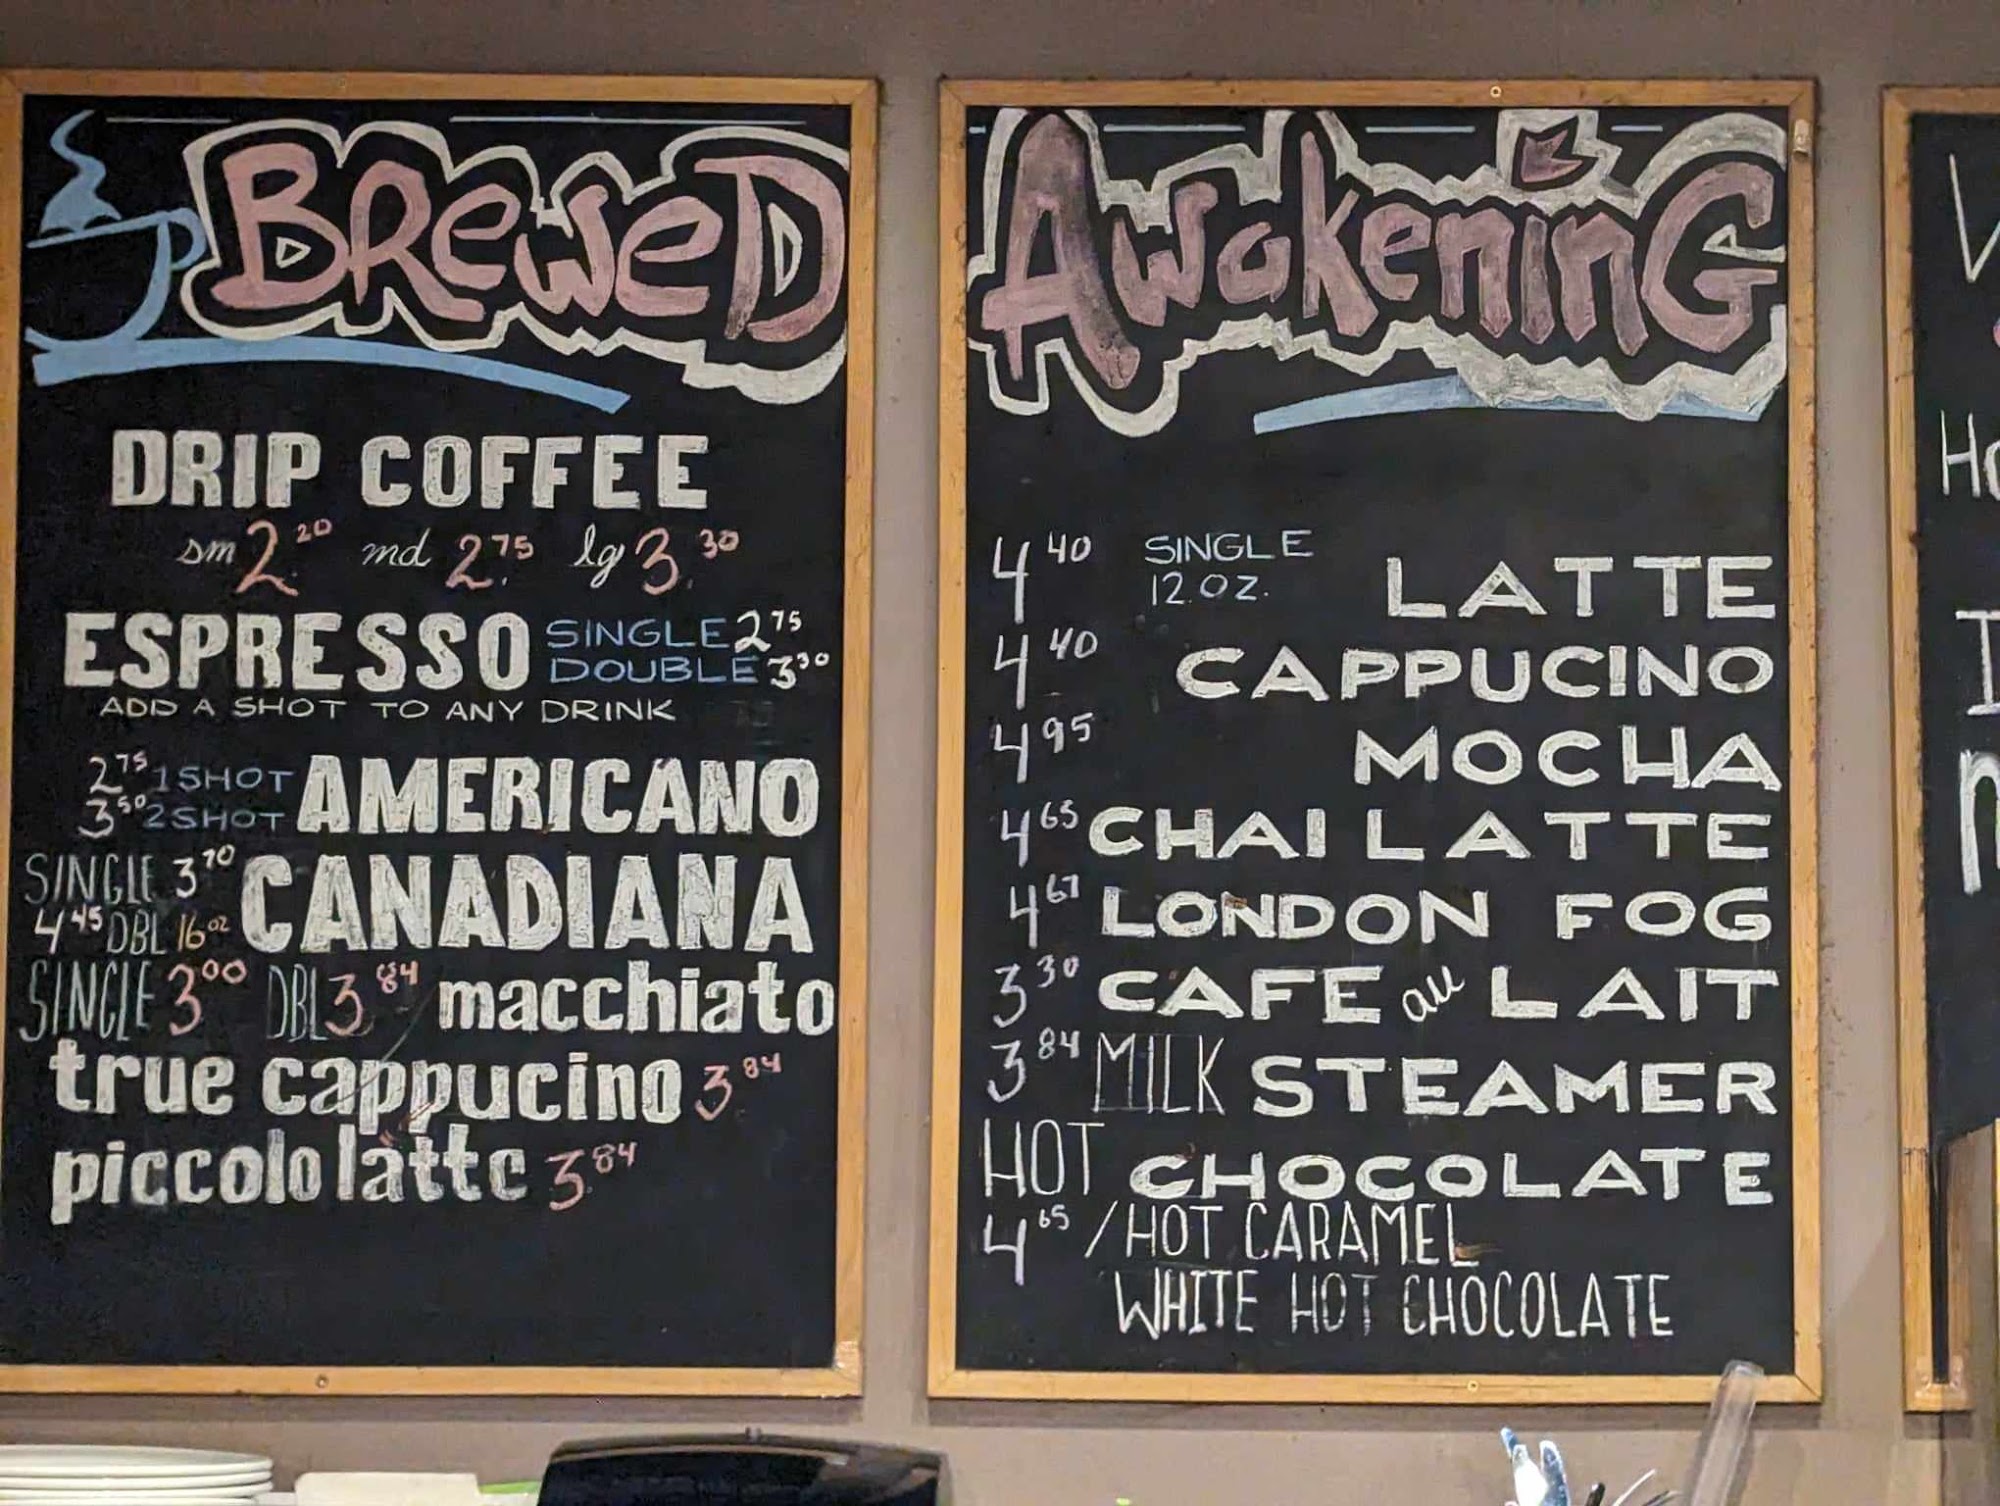 BReweD
DRIP COFFEE
sm 2.20 md 2.75 lg 3.30
ESPRESSO SINGLE 2.75
DOUBLE 3.30
ADD A SHOT TO ANY DRINK
2.75 1 SHOT AMERICANO
3.50 2 SHOT
SINGLE 3.70 CANADIANA
4.45 DBL 16oz
SINGLE 3.00 DBL 3.84 macchiato
true cappucino 3.84
piccolo latte 3.84
AwakeninG
4.40 SINGLE 12.OZ. LATTE
4.40 CAPPUCINO
4.95 MOCHA
4.65 CHAI LATTE
4.67 LONDON FOG
3.30 CAFE au LAIT
3.84 MILK STEAMER
HOT CHOCOLATE
4.65 / HOT CARAMEL
WHITE HOT CHOCOLATE